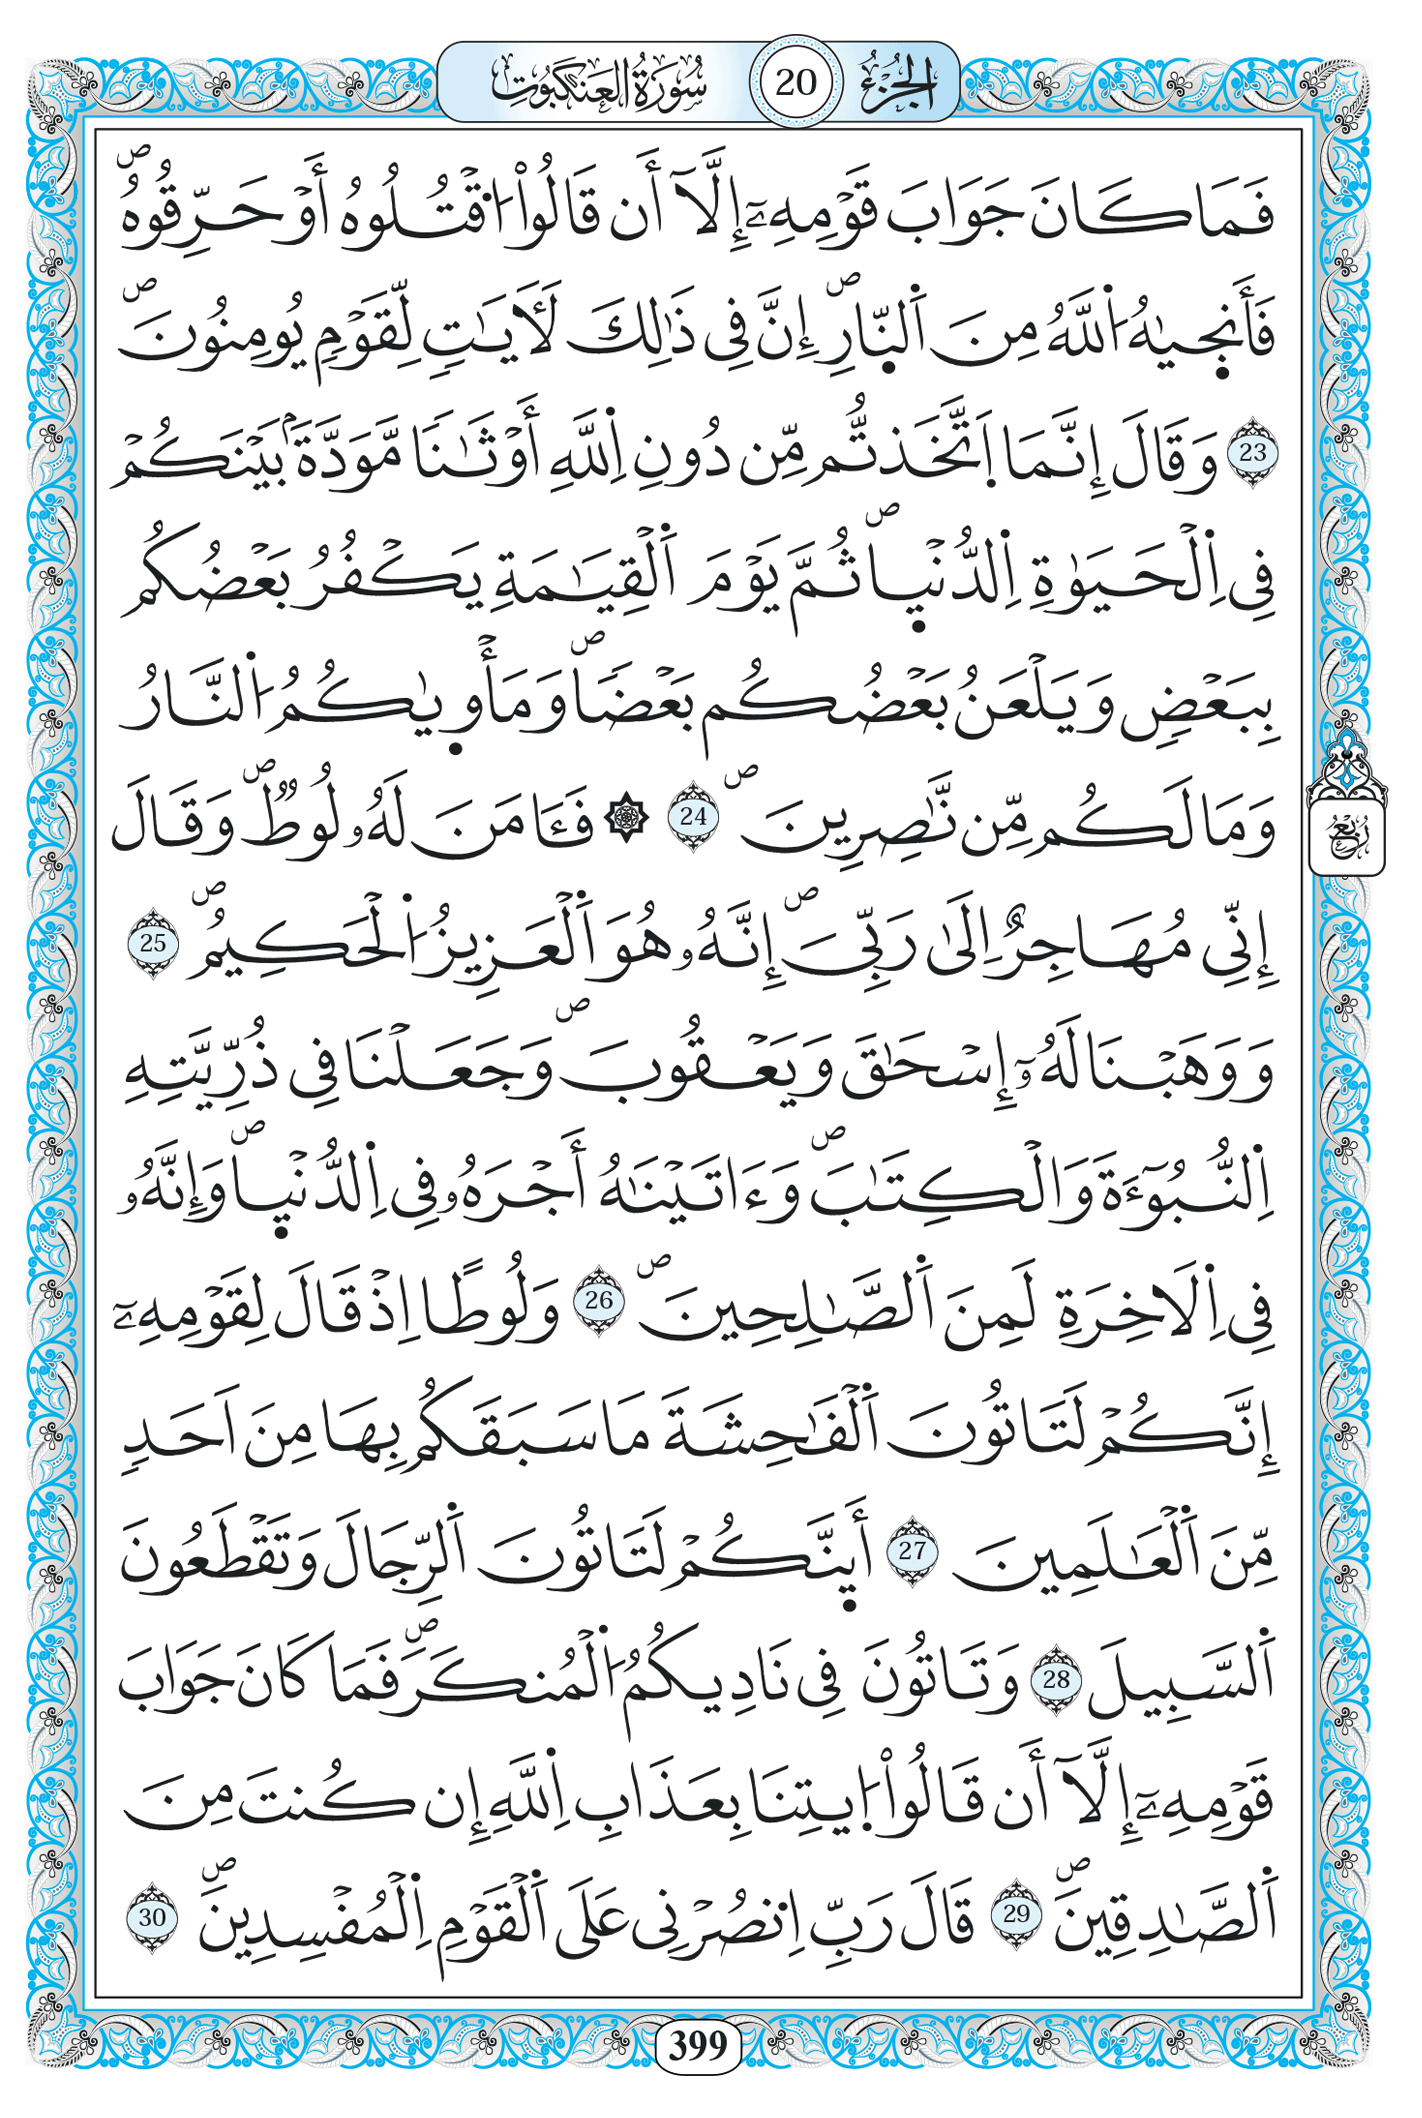 الجزء 20 سورة العنكبوت
فَمَا كَانَ جَوَابَ قَوْمِهِۦٓ إِلَّآ أَن قَالُواْ اُ۟قْتُلُوهُ أَوْ حَرِّقُوهُۖ
فَأَنج۪يٰهُ اُ۬للَّهُ مِنَ اَ۬لنّ۪ارِۖ إِنَّ فِى ذَٰلِكَ لَأٓيَٰتٖ لِّقَوْمٖ يُومِنُونَۖ
23 وَقَالَ إِنَّمَا اَ۪تَّخَذتُّم مِّن دُونِ اِ۬للَّهِ أَوْثَٰنٗا مَّوَدَّةَۢ بَيْنَكُمْ
فِى اِ۬لْحَيَوٰةِ اِ۬لدُّنْي۪اۖ ثُمَّ يَوْمَ اَ۬لْقِيَٰمَةِ يَكْفُرُ بَعْضُكُم
بِبَعْضٖ وَيَلْعَنُ بَعْضُكُم بَعْضٗاۖ وَمَأْو۪يٰكُمُ اُ۬لنَّارُ
وَمَا لَكُم مِّن نَّٰصِرِينَۖ 24 ۞ فَـَٔامَنَ لَهُۥ لُوطٞۖ وَقَالَ
إِنِّى مُهَاجِرٌ اِلَىٰ رَبِّىَۖ إِنَّهُۥ هُوَ اَ۬لْعَزِيزُ اُ۬لْحَكِيمُۖ 25
وَوَهَبْنَا لَهُۥٓ إِسْحَٰقَ وَيَعْقُوبَۖ وَجَعَلْنَا فِى ذُرِّيَّتِهِ
اِ۬لنُّبُوٓءَةَ وَالْكِتَٰبَۖ وَءَاتَيْنَٰهُ أَجْرَهُۥ فِى اِ۬لدُّنْي۪اۖ وَإِنَّهُۥ
فِى اِ۬لَاخِرَةِ لَمِنَ اَ۬لصَّٰلِحِينَۖ 26 وَلُوطًا اِذْ قَالَ لِقَوْمِهِۦٓ
إِنَّكُمْ لَتَاتُونَ اَ۬لْفَٰحِشَةَ مَا سَبَقَكُم بِهَا مِنَ اَحَدٖ
مِّنَ اَ۬لْعَٰلَمِينَ 27 أَى۪نَّكُمْ لَتَاتُونَ اَ۬لرِّجَالَ وَتَقْطَعُونَ
اَ۬لسَّبِيلَ 28 وَتَاتُونَ فِى نَادِيكُمُ اُ۬لْمُنكَرَۖ فَمَا كَانَ جَوَابَ
قَوْمِهِۦٓ إِلَّآ أَن قَالُواْ اُ۪يتِنَا بِعَذَابِ اِ۬للَّهِ إِن كُنتَ مِنَ
اَ۬لصَّٰدِقِينَۖ 29 قَالَ رَبِّ اِ۟نصُرْنِى عَلَى اَ۬لْقَوْمِ اِ۬لْمُفْسِدِينَۖ 30
رُبُعُ
399